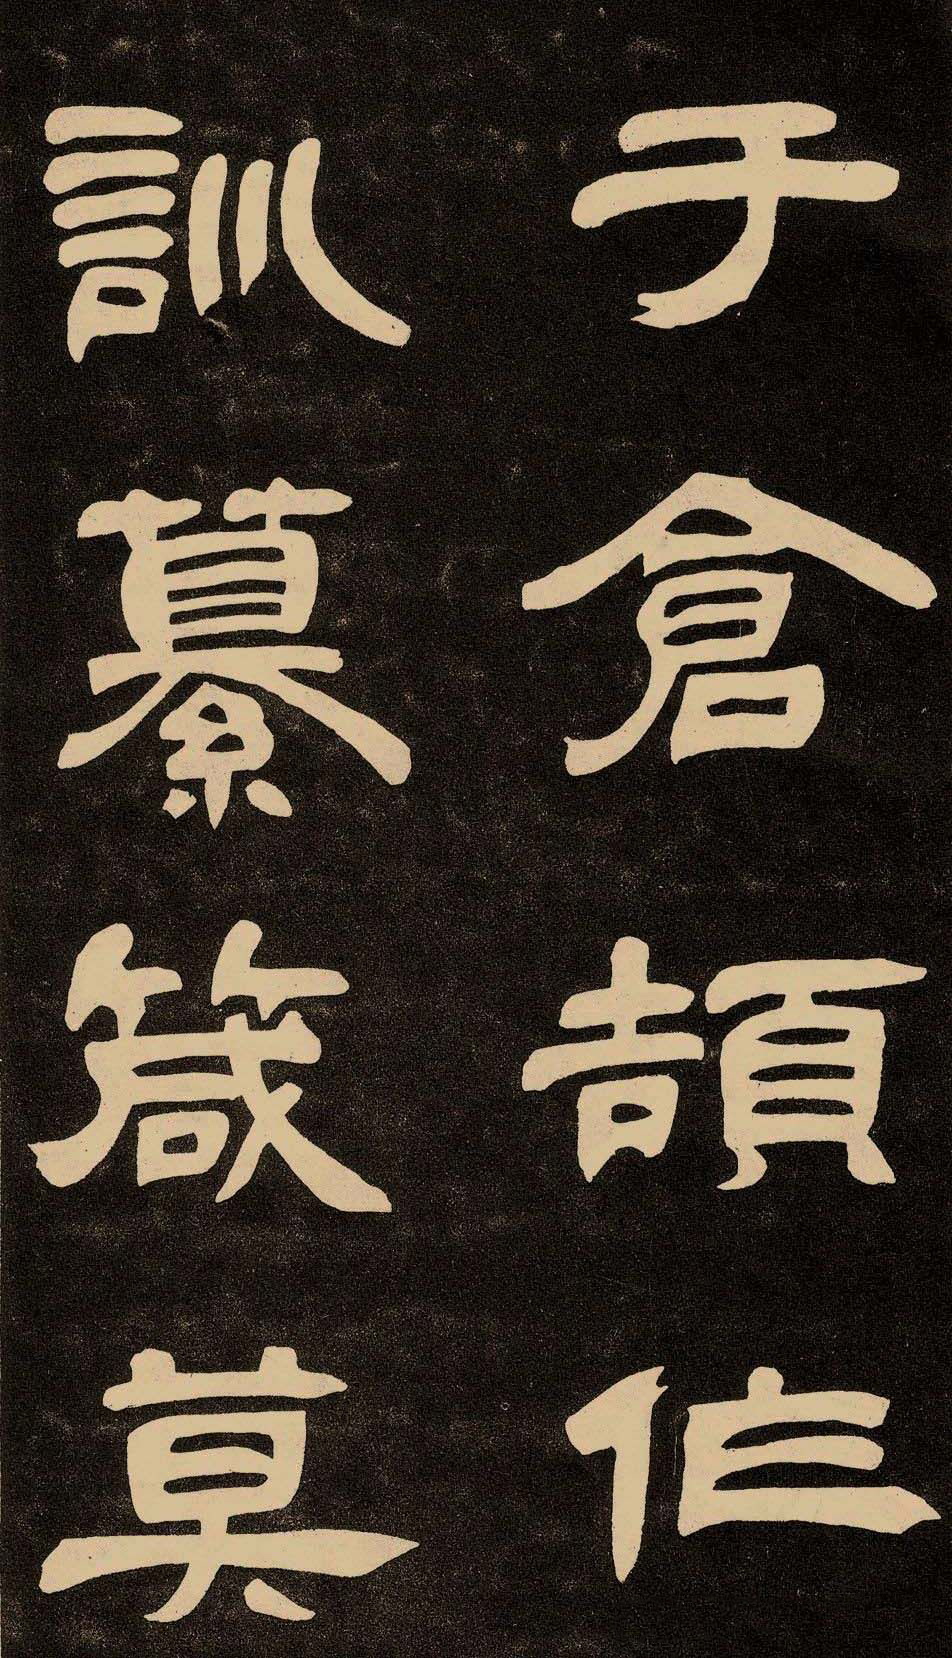 于倉頡作
訓纂箴莫